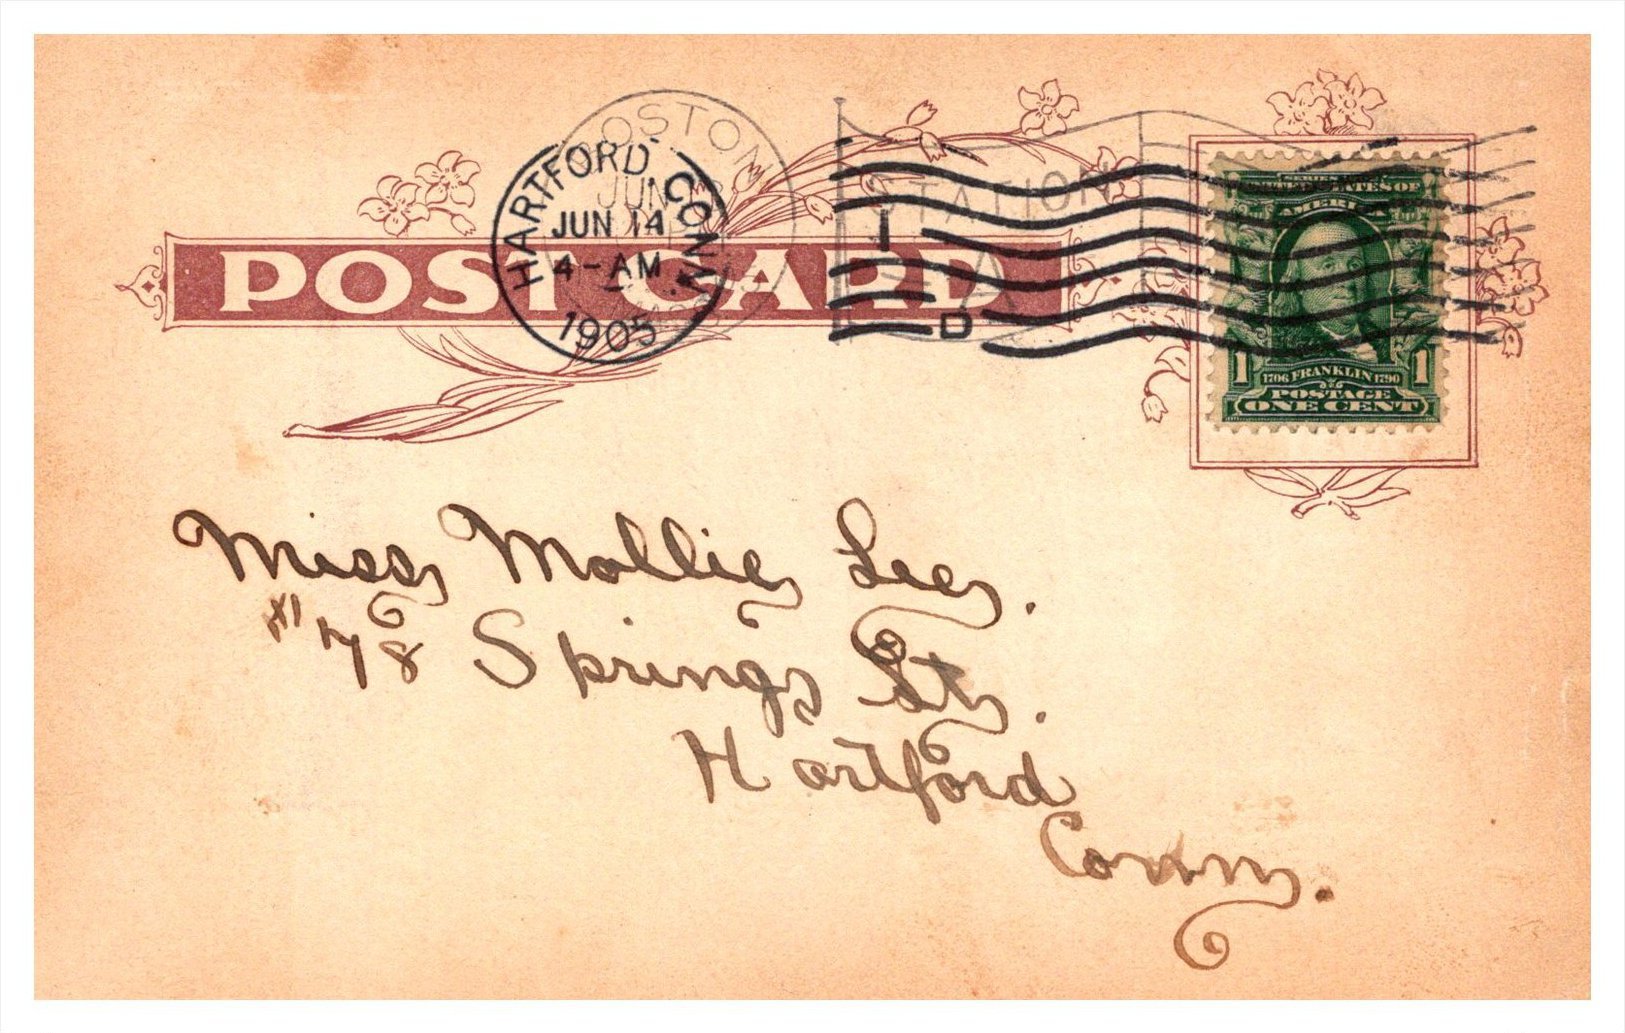 BOSTON
JUN
HARTFORD, CONN.
JUN 14
4-AM
1905
STATION
A
1
D
POST CARD
UNITED STATES OF
AMERICA
1 1
1706 FRANKLIN 1790
POSTAGE
ONE CENT
Miss Mollie Lee.
#78 Spring St.
Hartford
Conn.